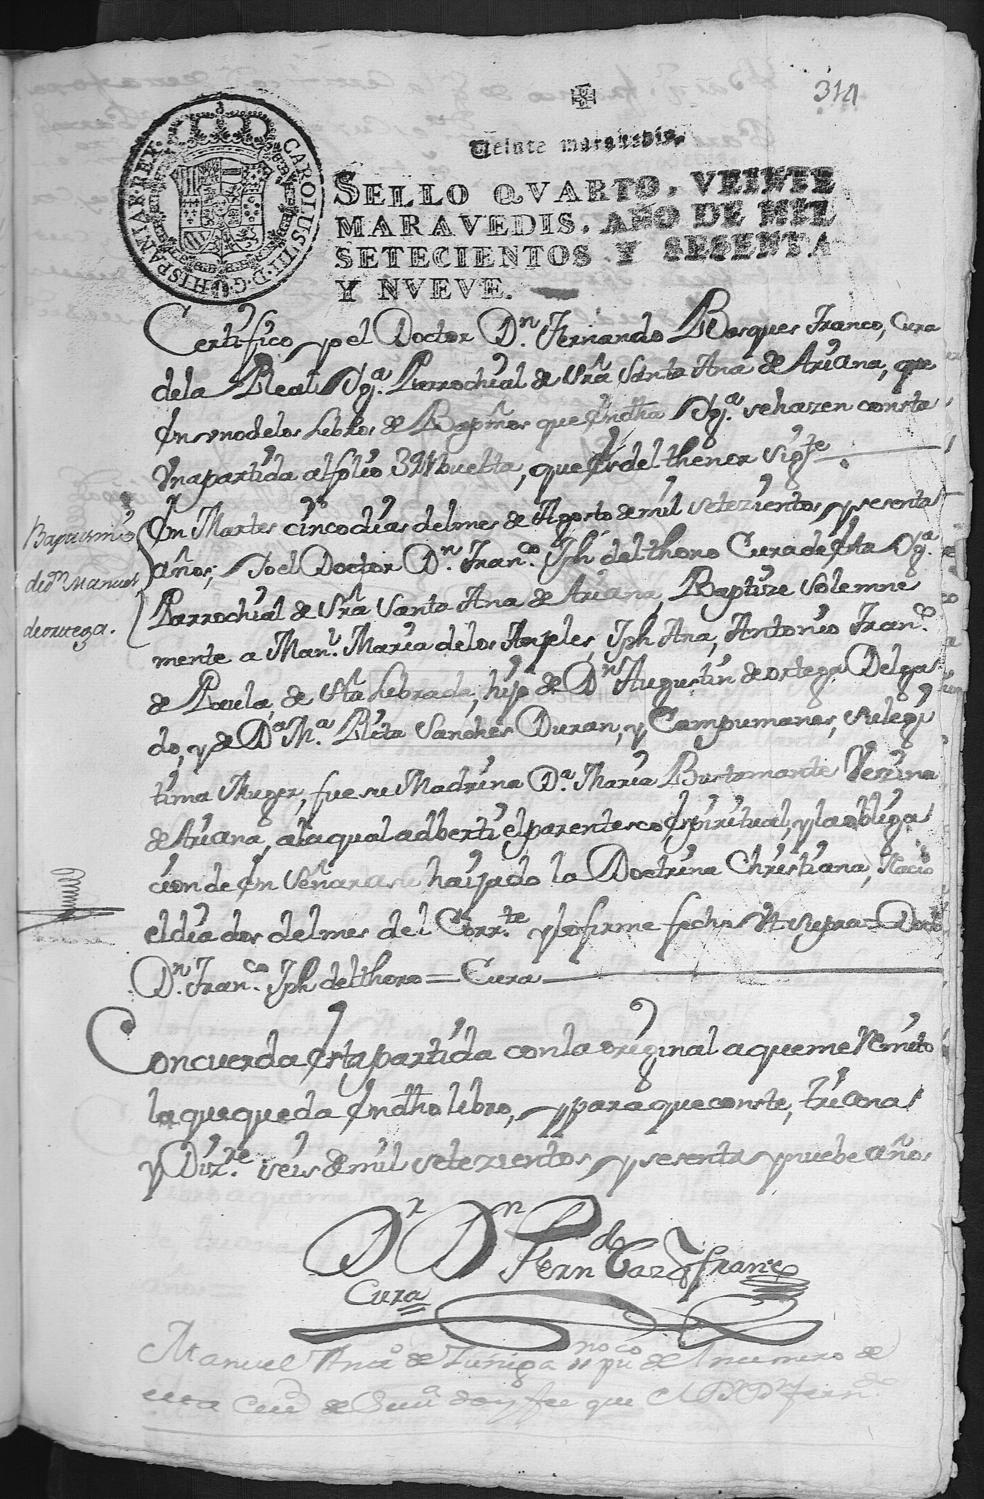 314
Veinte maravedis.
CAROLUS III D G HISPANIAR REX
SELLO QVARTO, VEINTE
MARAVEDIS, AÑO DE MIL
SETECIENTOS Y SESENTA
Y NVEVE.
Certifico yo el Doctor Dn. Fernando Basques Franco, Cura
de la Real Ygª. Parrochial de Srā Santa Ana de Triana, que
En uno de los Lebros de Bapmōs que En dhā Ygª. se hazen consta
Una partida al folio 39 buelta, que Es del thenor Sigte.
Baptismo
de Dn. Manuel
de ortega.
En Martes cinco dias del mes de Agosto de mil setezientos y sesenta
años; Yo el Doctor Dn. Franco. Jph del thoro Cura de Esta Ygª.
Parrochial de Srā Santa Ana de Triana, Baptize Solemne
mente a Manl. Maria de los Anjeles, Jph Ana, Antonio Franco.
de Paula, de Stā Lebrada, hijo de Dn. Augustin de ortega Delga
do, y de Dª. Mª. Rita Sanches Duran, y Campumanes, su legi
tima Muger, fue su Madrina Dª. Maria Bustamante Vezina
de Triana, a la qual adberti el parentesco Espiritual, y la obliga
cion de En señar a su haijado la Doctrina Christiana, Nacio
el dia dos del mes del Corrte. y lo firme fecha Ut supra = Doctor
Dn. Franco. Jph del thoro = Cura
Concuerda Esta partida con la original a que me Remito
la que queda En dho lebro, y para que conste, triana
y Dizre. seis de mil setezientos y sesenta y nuebe años
Dr Dn Ferndo Baz Franco
Cura
Manuel de Zuñiga noco puco de el numero de
esta Ciud de Sevª doy fee que el Dr Dn Ferndo